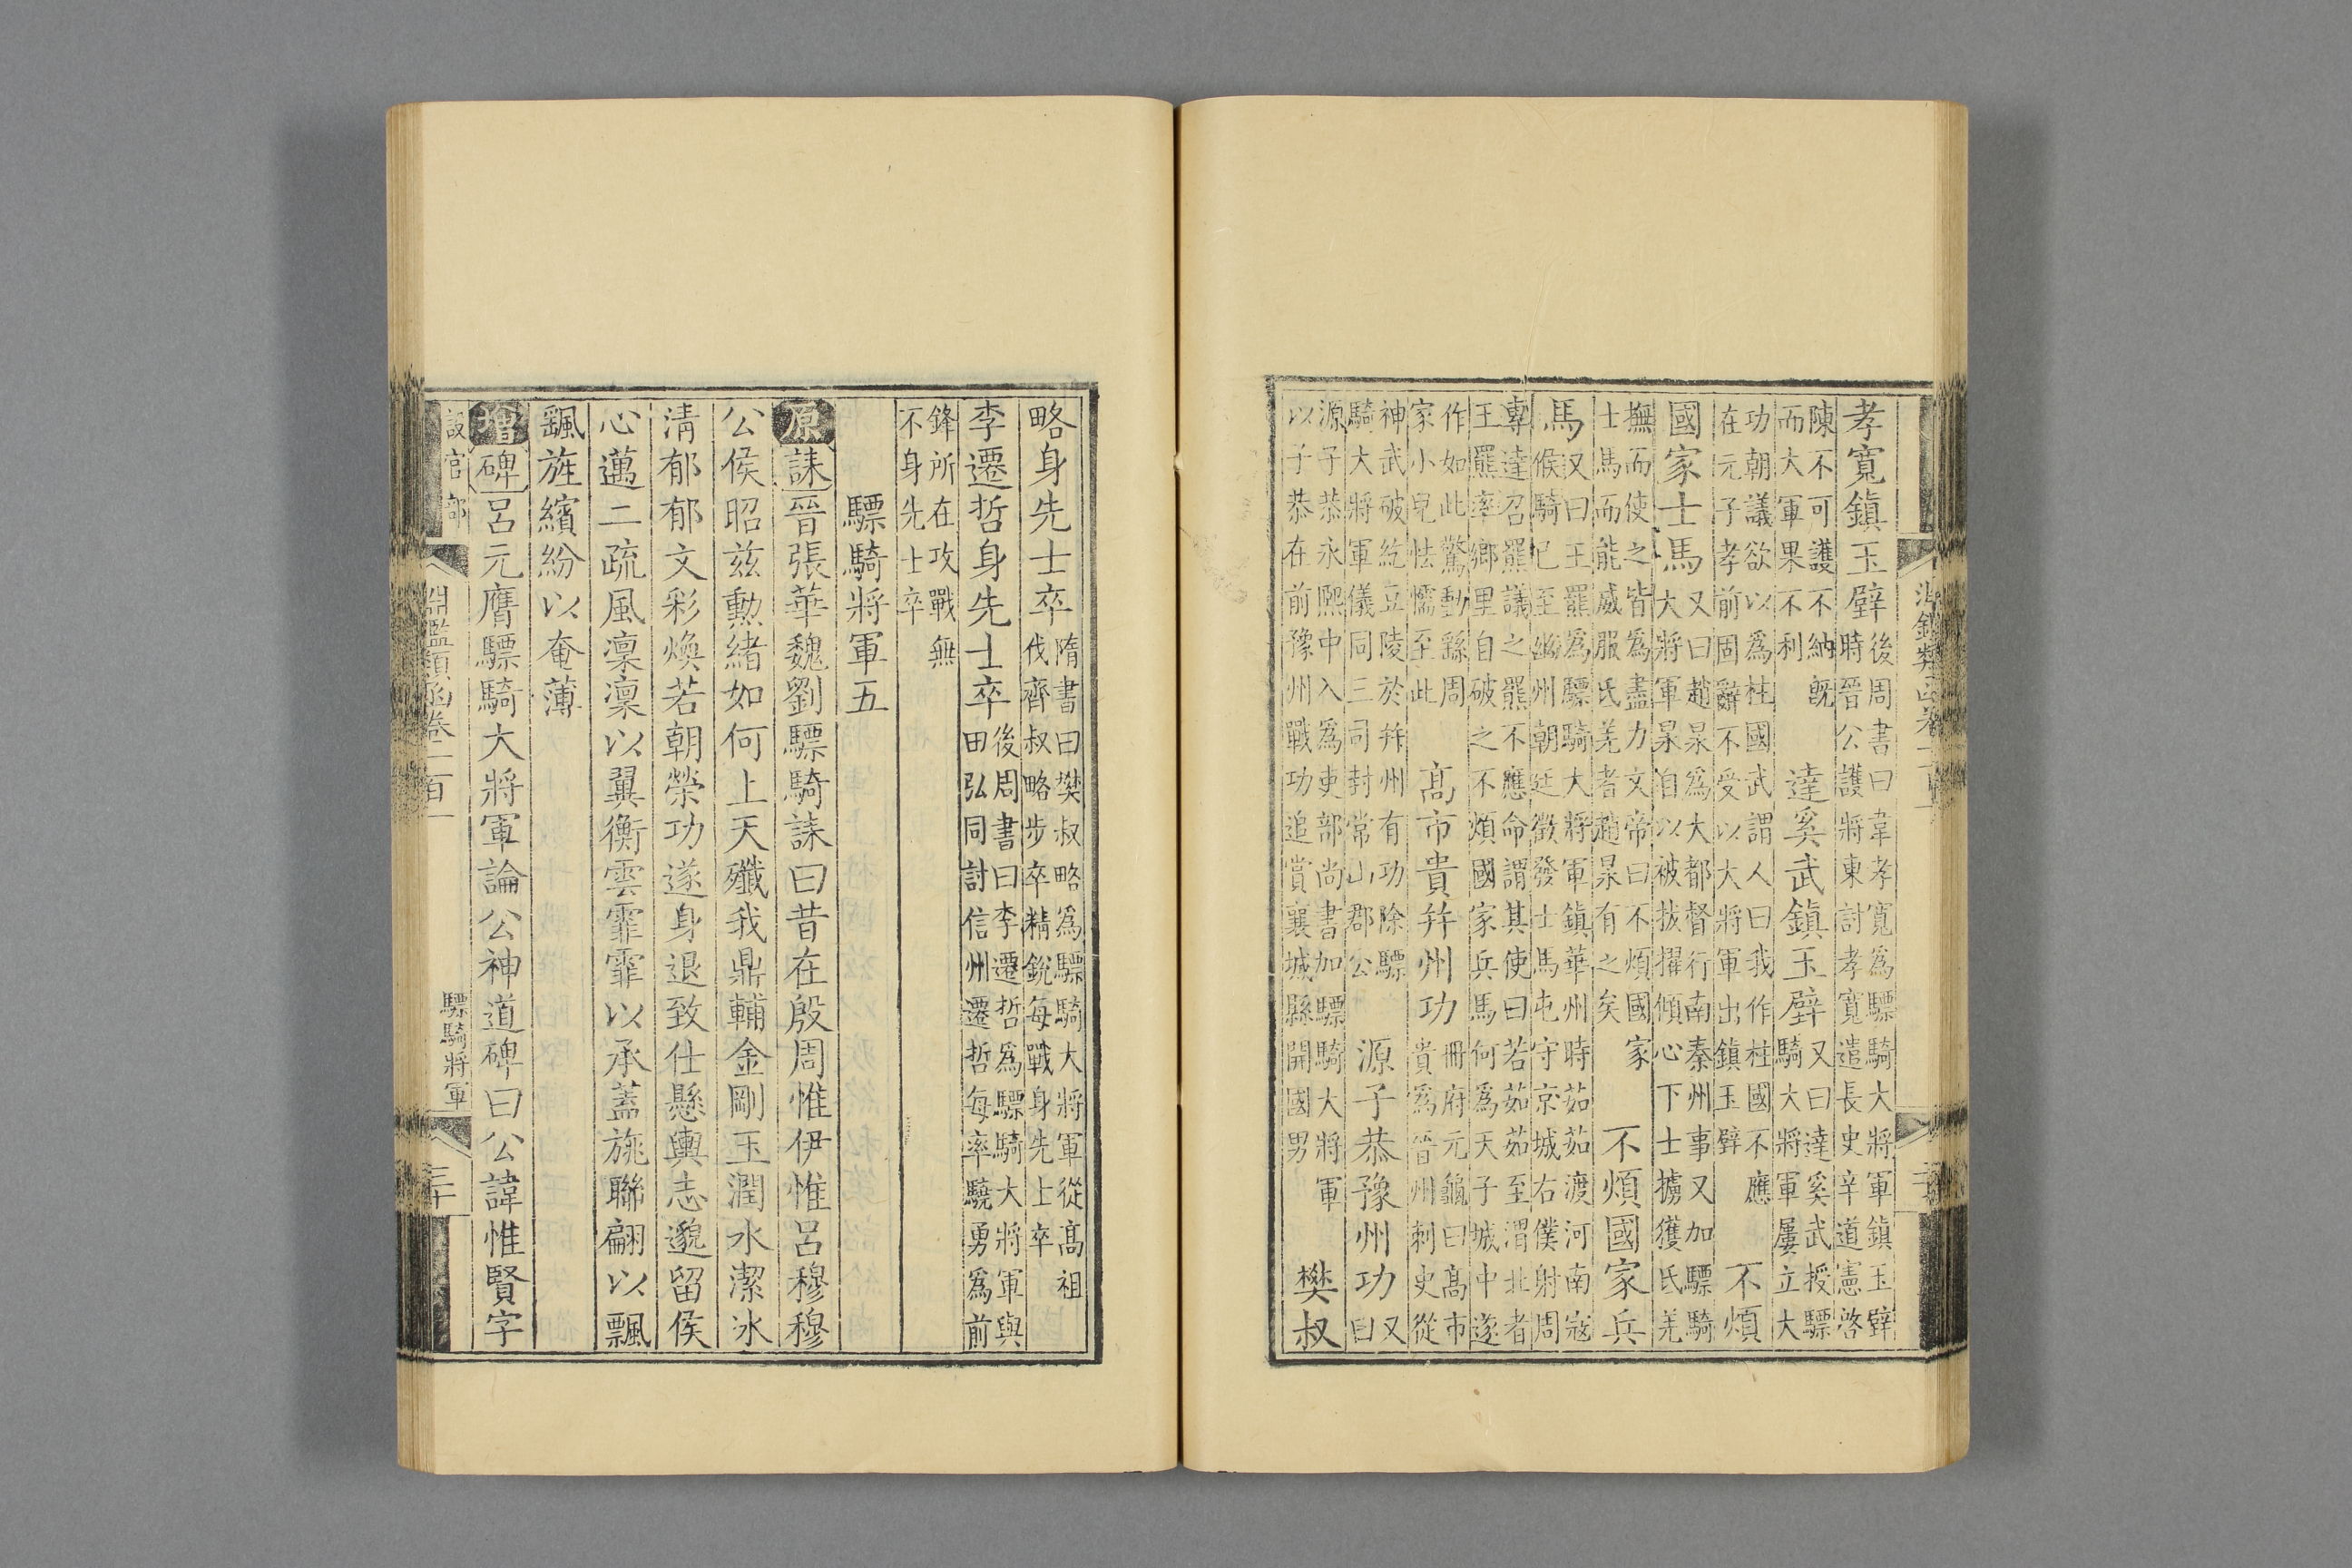 孝寬鎮玉壁後周書曰韋孝寬爲驃騎大將軍鎮玉壁時晉公護將東討孝寬遣長史辛道憲啓
陳不可護不納既而大軍果不利達奚武鎮玉壁又曰達奚武授驃騎大將軍屢立大
功朝議欲以爲柱國武謂人曰我作柱國不應在元子孝前固辭不受以大將軍出鎮玉壁不煩
國家士馬又曰趙杲爲大都督行南秦州事又加驃騎大將軍杲自以被拔擢傾心下士擄獲氐羌
撫而使之皆爲盡力文帝曰不煩國家士馬而能威服氐羌者趙杲有之矣不煩國家兵
馬又曰王羆爲驃騎大將軍鎮華州時茹茹渡河南寇候騎已至豳州朝廷徵發士馬屯守京城右僕射周
專達召羆議之羆不應命謂其使曰若茹茹至渭北者王羆率鄉里自破之不煩國家兵馬何爲天子城中遂
作如此驚動繇周家小兒怯懦至此高市貴并州功冊府元龜曰高市貴爲晉州刺史從
神武破紇豆陵於并州有功除驃騎大將軍儀同三司封常山郡公源子恭豫州功又曰
源子恭永熙中入爲吏部尚書加驃騎大將軍以子恭在前豫州戰功追賞襄城縣開國男樊叔
略身先士卒隋書曰樊叔略爲驃騎大將軍從高祖伐齊叔略步卒精銳每戰身先士卒
李遷哲身先士卒後周書曰李遷哲爲驃騎大將軍與田弘同討信州遷哲每率驍勇爲前
鋒所在攻戰無不身先士卒
驃騎將軍五
原誄晉張華魏劉驃騎誄曰昔在殷周惟伊惟呂穆穆
公侯昭茲勳緒如何上天殲我鼎輔金剛玉潤水潔冰
清郁郁文彩煥若朝榮功遂身退致仕懸輿志邈留侯
心邁二疏風凜凜以翼衡雲霏霏以承蓋旐聯翩以飄
颻旌繽紛以奄薄
增碑呂元膺驃騎大將軍論公神道碑曰公諱惟賢字
設官部 淵鑑類函卷二百一 驃騎將軍 三十